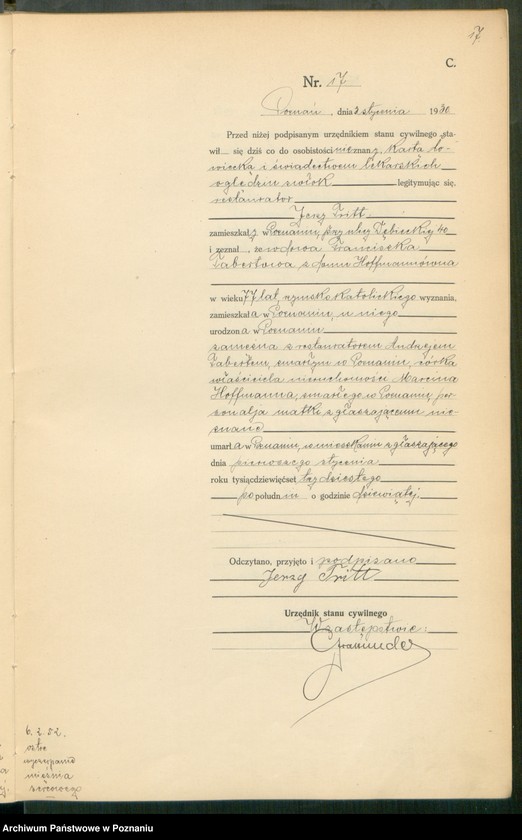 17
C.
Nr. 17
Poznań, dnia 2 stycznia 1930
Przed niżej podpisanym urzędnikiem stanu cywilnego sta-
wił się dziś co do osobistości nieznany, karta ło-
wiecką i świadectwem lekarskich
oględzin zwłok legitymując się,
restaurator
Jerzy Tritt
zamieszkały w Poznaniu, przy ulicy Dębieckiej 40
i zeznał, że wdowa Franciszka
Zabertowa z domu Hoffmannówna
w wieku 77 lat, rzymsko katolickiego wyznania,
zamieszkała w Poznaniu, u niego
urodzona w Poznaniu
zamężna z restauratorem Andrzejem
Zabertem, zmarłym w Poznaniu, córka
właściciela nieruchomości Marcina
Hoffmanna, zmarłego w Poznaniu, per-
sonalja matki zgłaszającemu nie-
znane
umarła w Poznaniu, w mieszkaniu zgłaszającego
dnia pierwszego stycznia
roku tysiącdziewięćset trzydziestego
po południu o godzinie dziewiątej.
Odczytano, przyjęto i podpisano
Jerzy Tritt
Urzędnik stanu cywilnego
W zastępstwie:
6.2.02.
mięśnia
sercowego
Archiwum Państwowe w Poznaniu